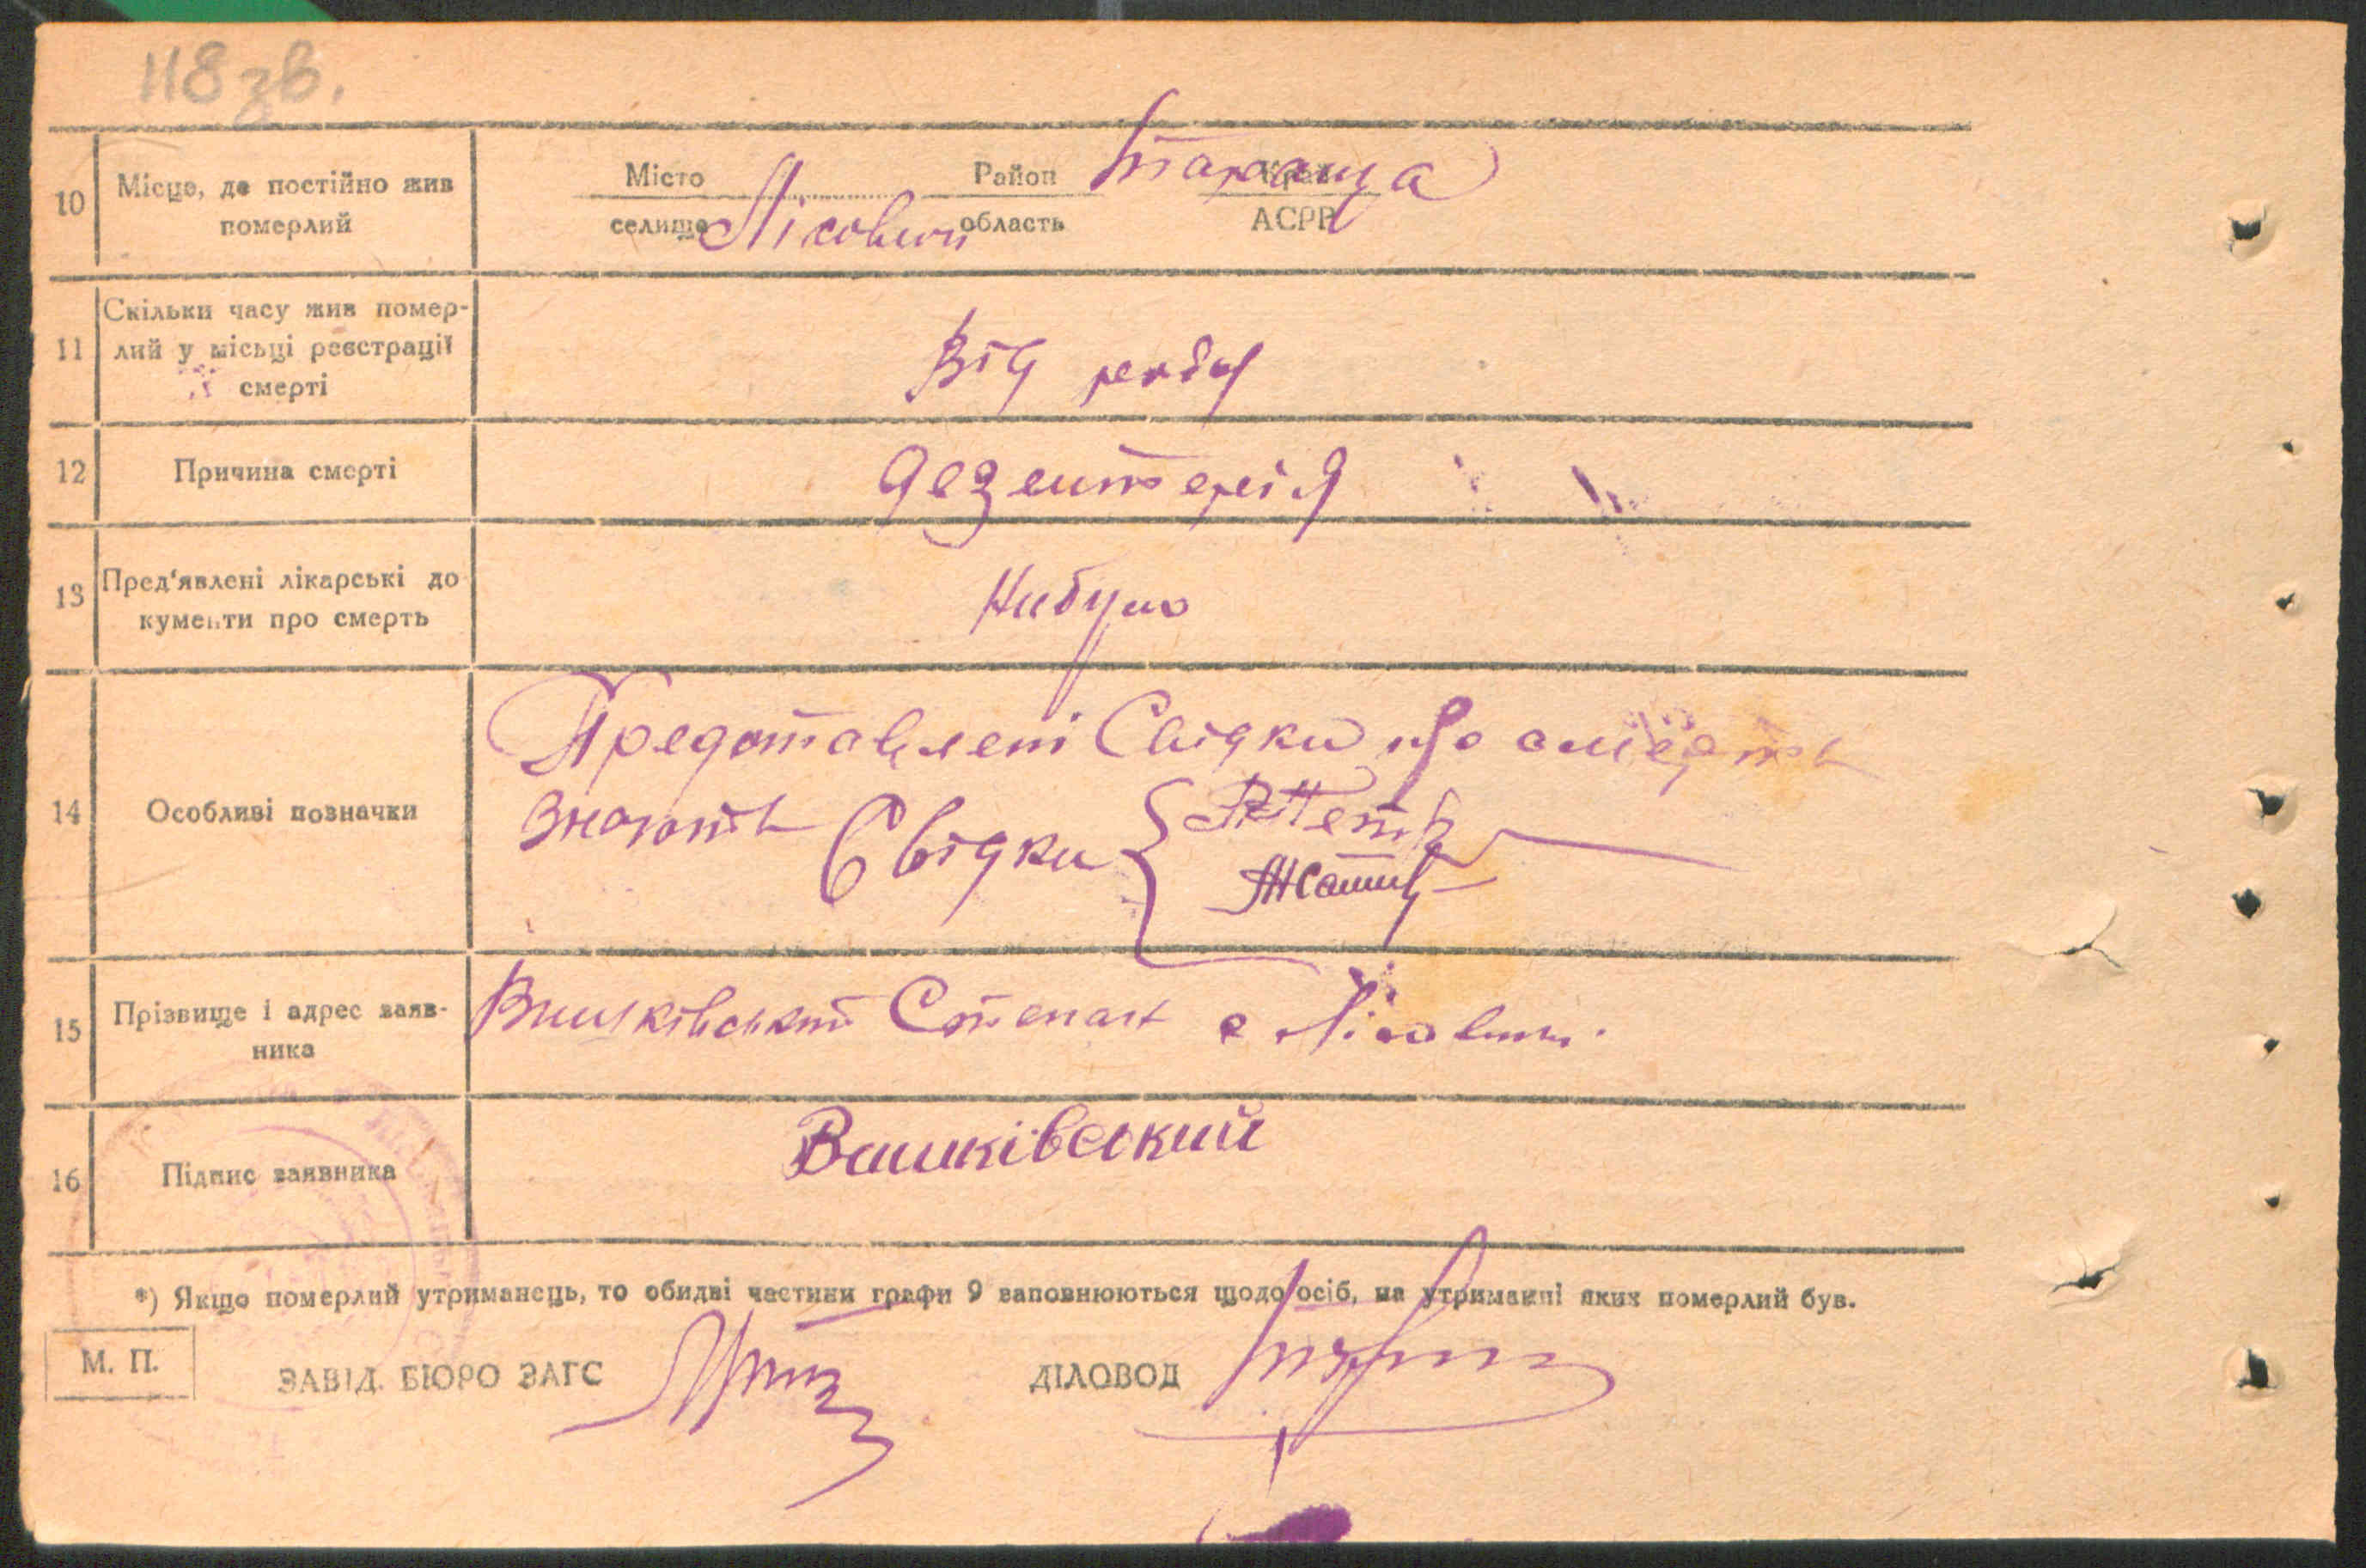 118 зв.
10 Місце, де постійно жив померлий
Місто Район Тараща
селище Лісовичі область АСРР
11 Скільки часу жив помер-
лий у місьці реєстрації
смерті
Від
12 Причина смерті
Дезентерія
13 Пред'явлені лікарські до
кументи про смерть
Небуло
14 Особливі позначки
Предотавлені Свідки що смерть
знають Свідки
15 Прізвище і адрес заяв-
ника
Степан с Лісовичи.
16 Підпис заявника
Вишківський
*) Якщо померлий утриманець, то обидві частини графи 9 заповнюються щодо осіб, на утриманні яких померлий був.
М. П.
ЗАВІД. БЮРО ЗАГС ДІЛОВОД